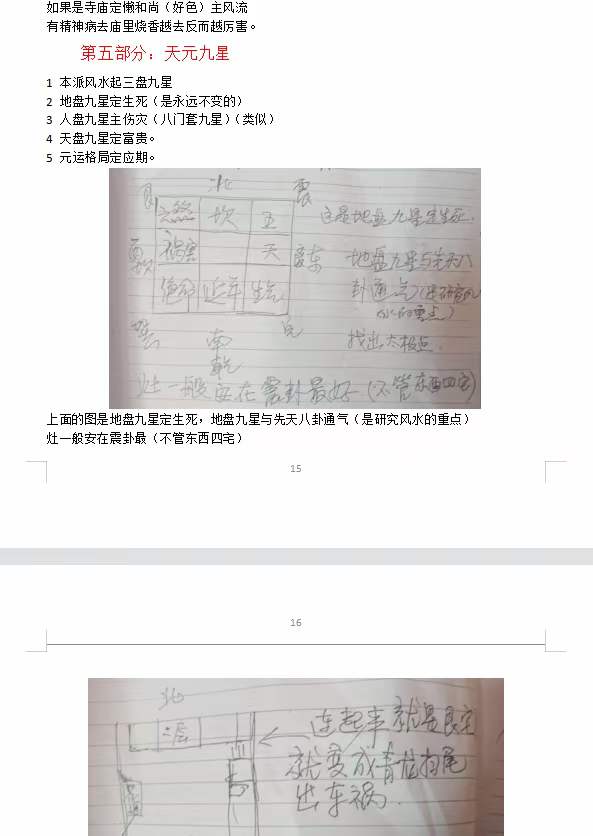 如果是寺庙定懒和尚（好色）主风流
有精神病去庙里烧香越去反而越厉害。
第五部分：天元九星
1 本派风水起三盘九星
2 地盘九星定生死（是永远不变的）
3 人盘九星主伤灾（八门套九星）（类似）
4 天盘九星定富贵。
5 元运格局定应期。
北 震
六煞 坎 五 这是地盘九星定生死.
祸害 天 东 地盘九星与先天八
绝命 延年 生气 卦通气（是研究风
水的重点）
南 兑 找出太极点.
乾
灶一般安在震卦最好（不管东西四宅）
上面的图是地盘九星定生死，地盘九星与先天八卦通气（是研究风水的重点）
灶一般安在震卦最（不管东西四宅）
15
16
北
二层 连起来就是艮宅
就变成青龙摆尾
出车祸.